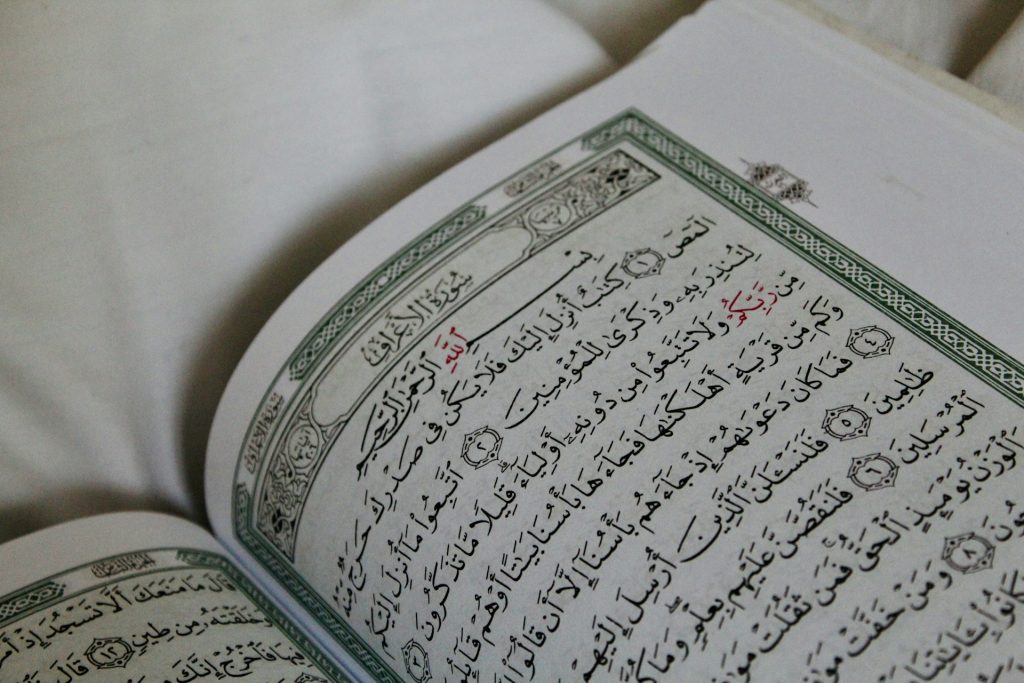 سُورَةُ الأَعْرَافِ
سُورَةُ الأَعْرَافِ
بِسْمِ ٱللَّهِ ٱلرَّحْمَٰنِ ٱلرَّحِيمِ
الٓمٓصٓ ١ كِتَٰبٌ أُنزِلَ إِلَيْكَ فَلَا يَكُن فِى صَدْرِكَ حَرَجٌ مِّنْهُ
لِتُنذِرَ بِهِۦ وَذِكْرَىٰ لِلْمُؤْمِنِينَ ٢ ٱتَّبِعُوا۟ مَآ أُنزِلَ إِلَيْكُم
مِّن رَّبِّكُمْ وَلَا تَتَّبِعُوا۟ مِن دُونِهِۦٓ أَوْلِيَآءَ قَلِيلًا مَّا تَذَكَّرُونَ ٣
وَكَم مِّن قَرْيَةٍ أَهْلَكْنَٰهَا فَجَآءَهَا بَأْسُنَا بَيَٰتًا أَوْ هُمْ
٤ فَمَا كَانَ دَعْوَىٰهُمْ إِذْ جَآءَهُم بَأْسُنَآ إِلَّآ أَن قَالُوٓا۟
ظَٰلِمِينَ ٥ فَلَنَسْـَٔلَنَّ ٱلَّذِينَ أُرْسِلَ إِلَيْهِمْ
ٱلْمُرْسَلِينَ ٦ فَلَنَقُصَّنَّ عَلَيْهِم بِعِلْمٍ وَمَا
ٱلْوَزْنُ يَوْمَئِذٍ ٱلْحَقُّ فَمَن ثَقُلَتْ
٨ وَمَنْ خَفَّتْ
كَانُوا۟ بِـَٔايَٰتِنَا
قَالَ مَا مَنَعَكَ أَلَّا تَسْجُدَ إِذْ
وَخَلَقْتَهُۥ مِن طِينٍ ١٢ قَالَ
فَٱخْرُجْ إِنَّكَ